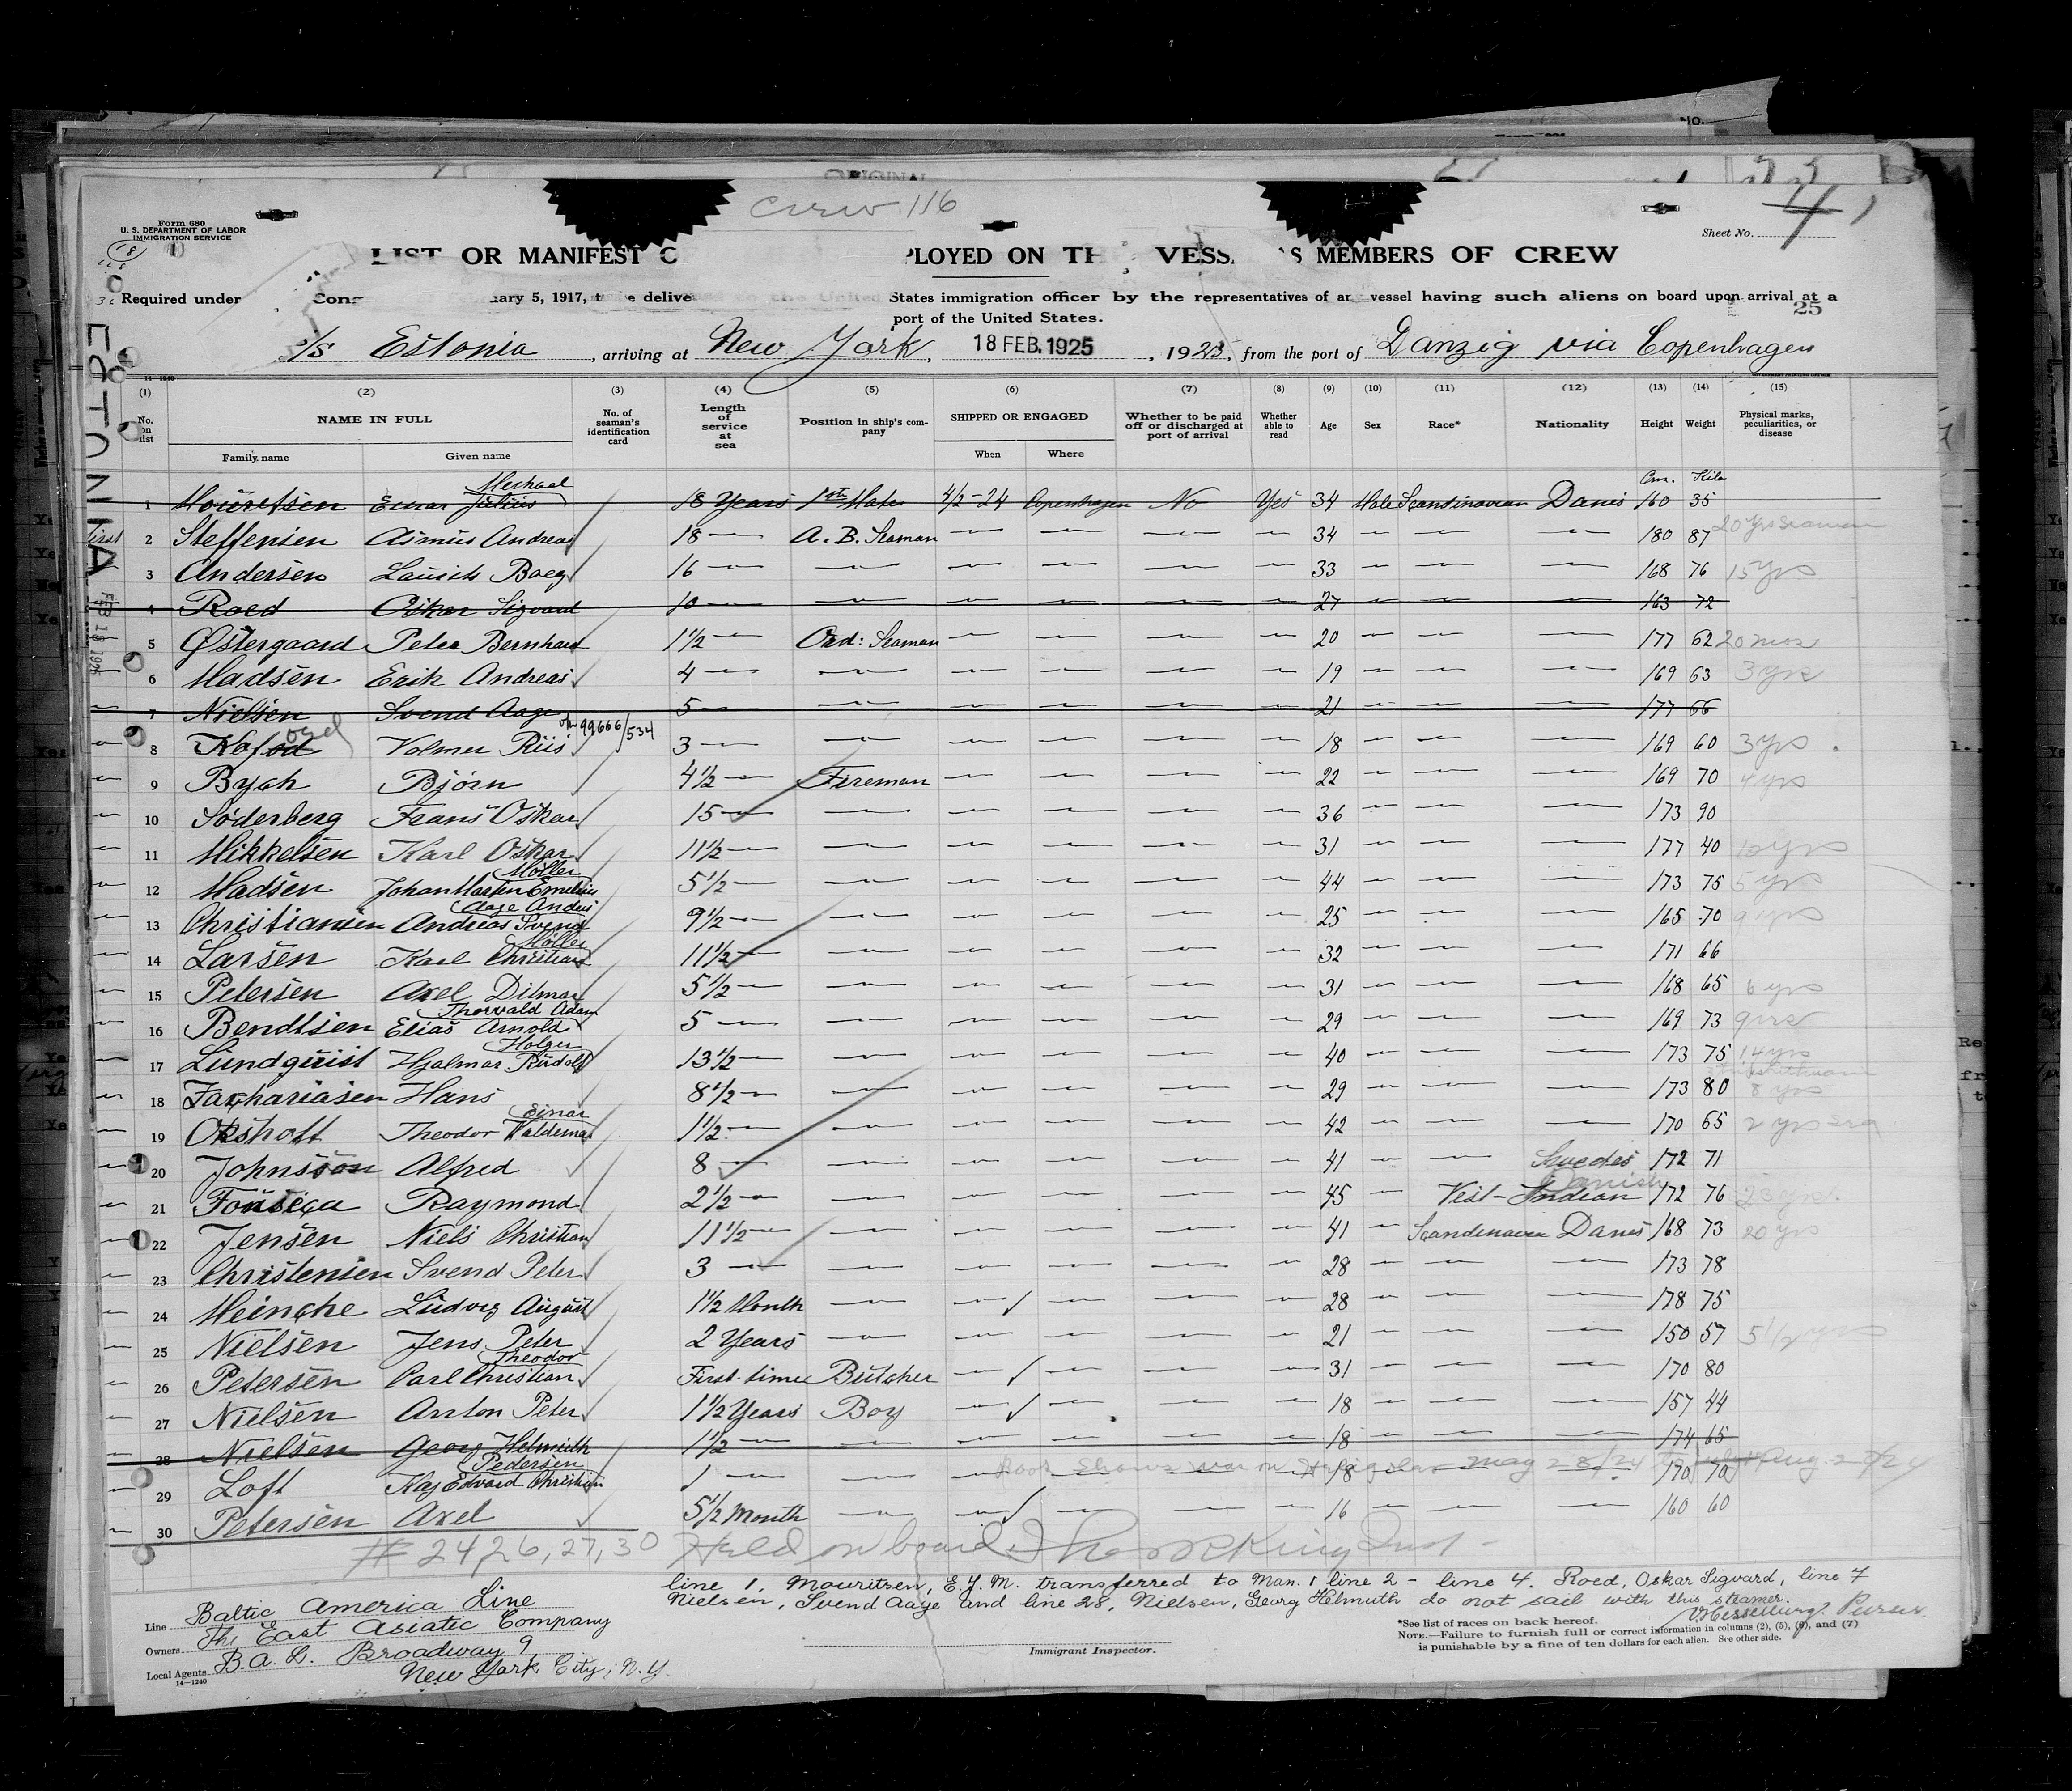 ORIGINAL
Crew 116
Form 680
U. S. DEPARTMENT OF LABOR
IMMIGRATION SERVICE
18
Sheet No. 4 1
LIST OR MANIFEST O PLOYED ON TH VESS S MEMBERS OF CREW
Required under Cong ary 5, 1917, to be delive to the United States immigration officer by the representatives of any vessel having such aliens on board upon arrival at a
port of the United States.
25
S/S Estonia, arriving at New York, 18 FEB. 1925, 1925, from the port of Danzig via Copenhagen
ESTONIA
FEB 18 1925
14—1240
(1) (2) (3) (4) (5) (6) (7) (8) (9) (10) (11) (12) (13) (14) (15)
No. on list NAME IN FULL No. of seaman's identification card Length of service at sea Position in ship's company SHIPPED OR ENGAGED Whether to be paid off or discharged at port of arrival Whether able to read Age Sex Race* Nationality Height Weight Physical marks, peculiarities, or disease
Family name Given name When Where
Cm. Kilo
1 Mouritsen Einar Julius Michael 18 Years 1st Mate 4/2-24 Copenhagen No Yes 34 Male Scandinavian Danis 160 35
first 2 Steffensen Asmus Andreas 18 — A. B. Seaman — — — — 34 — — — 180 87 20 yrs Seaman
3 Andersen Lauich Baeg 16 — — — — — — 33 — — — 168 76 15 yrs
4 Roed Oskar Sigvard 10 — — — — — — 27 — — — 163 72
5 Østergaard Peter Bernhard 1 1/2 — Ord: Seaman — — — — 20 — — — 177 62 20 mos
6 Madsen Erik Andreas 4 — — — — — — 19 — — — 169 63 3 yrs
7 Nielsen Svend Aage 5 — — — — — — 21 — — — 177 66
8 Kofod oed Volmer Riis 99666/534 3 — — — — — — 18 — — — 169 60 3 yrs
9 Bych Bjørn 4 1/2 — Fireman — — — — 22 — — — 169 70 4 yrs
10 Søderberg Frans Oskar 15 — — — — — — 36 — — — 173 90
11 Mikkelsen Karl Oskar 11 1/2 — — — — — — 31 — — — 177 40 10 yrs
12 Madsen Johan Martin Emelius Möller 5 1/2 — — — — — — 44 — — — 173 75 5 yrs
13 Christiansen Andreas Svend Aage Anders 9 1/2 — — — — — — 25 — — — 165 70 9 yrs
14 Larsen Karl Christian Möller 11 1/2 — — — — — — 32 — — — 171 66
15 Petersen Axel Ditmar 5 1/2 — — — — — — 31 — — — 168 65 6 yrs
16 Bendtsen Elias Arnold Thorvald Adam 5 — — — — — — 29 — — — 169 73 9 yrs
17 Lundquist Hjalmar Rudolf Holger 13 1/2 — — — — — — 40 — — — 173 75 14 yrs
18 Zachariasen Hans 8 1/2 — — — — — — 29 — — — 173 80 8 yrs
19 Oxshott Theodor Valdemar Einar 1 1/2 — — — — — — 42 — — — 170 65 2 yrs sea
20 Johnsson Alfred 8 — — — — — — 41 — — Swedes 172 71
21 Fonseca Raymond 2 1/2 — — — — — — 45 — Vest-Indian Danish 172 76
22 Jensen Niels Christian 11 1/2 — — — — — — 41 — Scandinavian Danis 168 73 20 yrs
23 Christensen Svend Peter 3 — — — — — — 28 — — — 173 78
24 Meincke Ludvig August 1 1/2 Month — — — — — 28 — — — 178 75
25 Nielsen Jens Peter 2 Years — — — — — 21 — — — 150 57 5 1/2 yrs
26 Petersen Carl Christian Theodor First time Butcher — — — — 31 — — — 170 80
27 Nielsen Anton Peter 1 1/2 Years Boy — — — — 18 — — — 157 44
28 Nielsen Georg Helmuth 1 1/2 — — — — — — 18 — — — 174 65
29 Loft Kaj Edvard Christian Pedersen 1 — — — — — — 18 — — — 170 70
Book shows was on May 28/24 to Aug 27/24
30 Petersen Axel 5 1/2 Month — — — — — 16 — — — 160 60
# 24, 26, 27, 30 Held on board King Insp
line 1, Mouritsen, E. J. M. transferred to Man. 1 line 2 – line 4. Roed, Oskar Sigvard, line 7
Nielsen, Svend Aage and line 28, Nielsen, Georg Helmuth do not sail with this steamer.
Purser
Line Baltic America Line
Owners The East Asiatic Company
Local Agents B. A. L. Broadway 9
New York City, N.Y.
14—1240
Immigrant Inspector.
*See list of races on back hereof.
NOTE.—Failure to furnish full or correct information in columns (2), (5), (6), and (7)
is punishable by a fine of ten dollars for each alien. See other side.